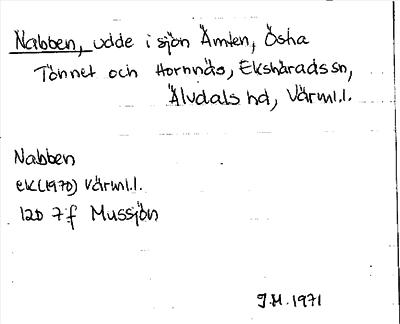 Nabben, udde i sjön Ämten, Östra
Tönnet och Hornnäs, Ekshärads sn,
Älvdals hd, Värml.l.
Nabben
ek(1970) Värml.l.
12D 7f Mussjön
J.M. 1971